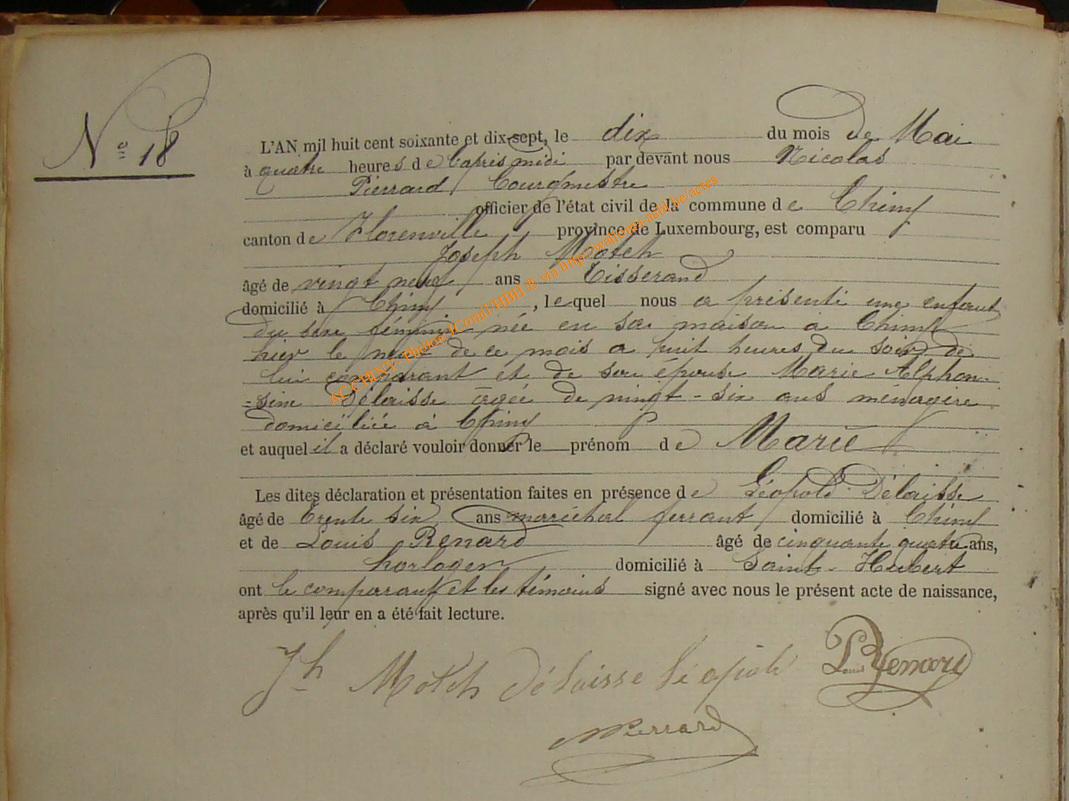 N° 18
L'AN mil huit cent soixante et dix-sept, le dix du mois de Mai
à quatre heures de l'après midi par devant nous Nicolas
Pierrard Bourgmestre
officier de l'état civil de la commune de Chiny
canton de Florenville province de Luxembourg, est comparu
Joseph Motch
âgé de vingt neuf ans Tisserand
domicilié à Chiny, lequel nous a présenté une enfant
du sexe féminin née en sa maison à Chiny
hier le neuf de ce mois a huit heures du soir de
lui comparant et de son épouse Marie Alphon-
-sine Délaisse agée de vingt-six ans menagère
domiciliée à Chiny
et auquel il a déclaré vouloir donner le prénom de Marie
Les dites déclaration et présentation faites en présence de Léopold Délaisse
âgé de trente six ans maréchal ferrant domicilié à Chiny
et de Louis Renard âgé de cinquante quatre ans,
horloger domicilié à Saint-Hubert
ont le comparant et les témoins signé avec nous le présent acte de naissance,
après qu'il leur en a été fait lecture.
Jh Motch Délaisse Léopold Louis Renard
NPierrard